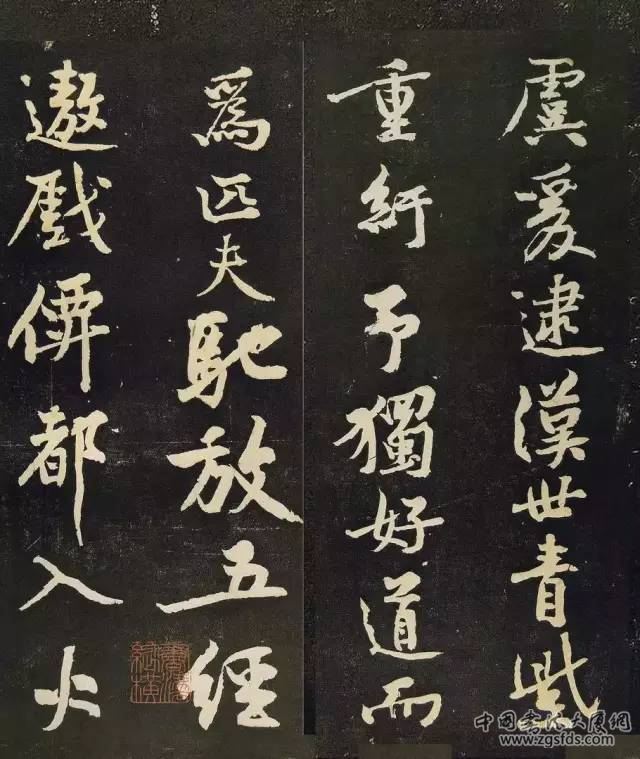 虞爰逮漢世青紫
重紆予獨好道而
爲匹夫馳放五經
遨戲僊都入火
中国书法大厦網
www.zgsfds.com